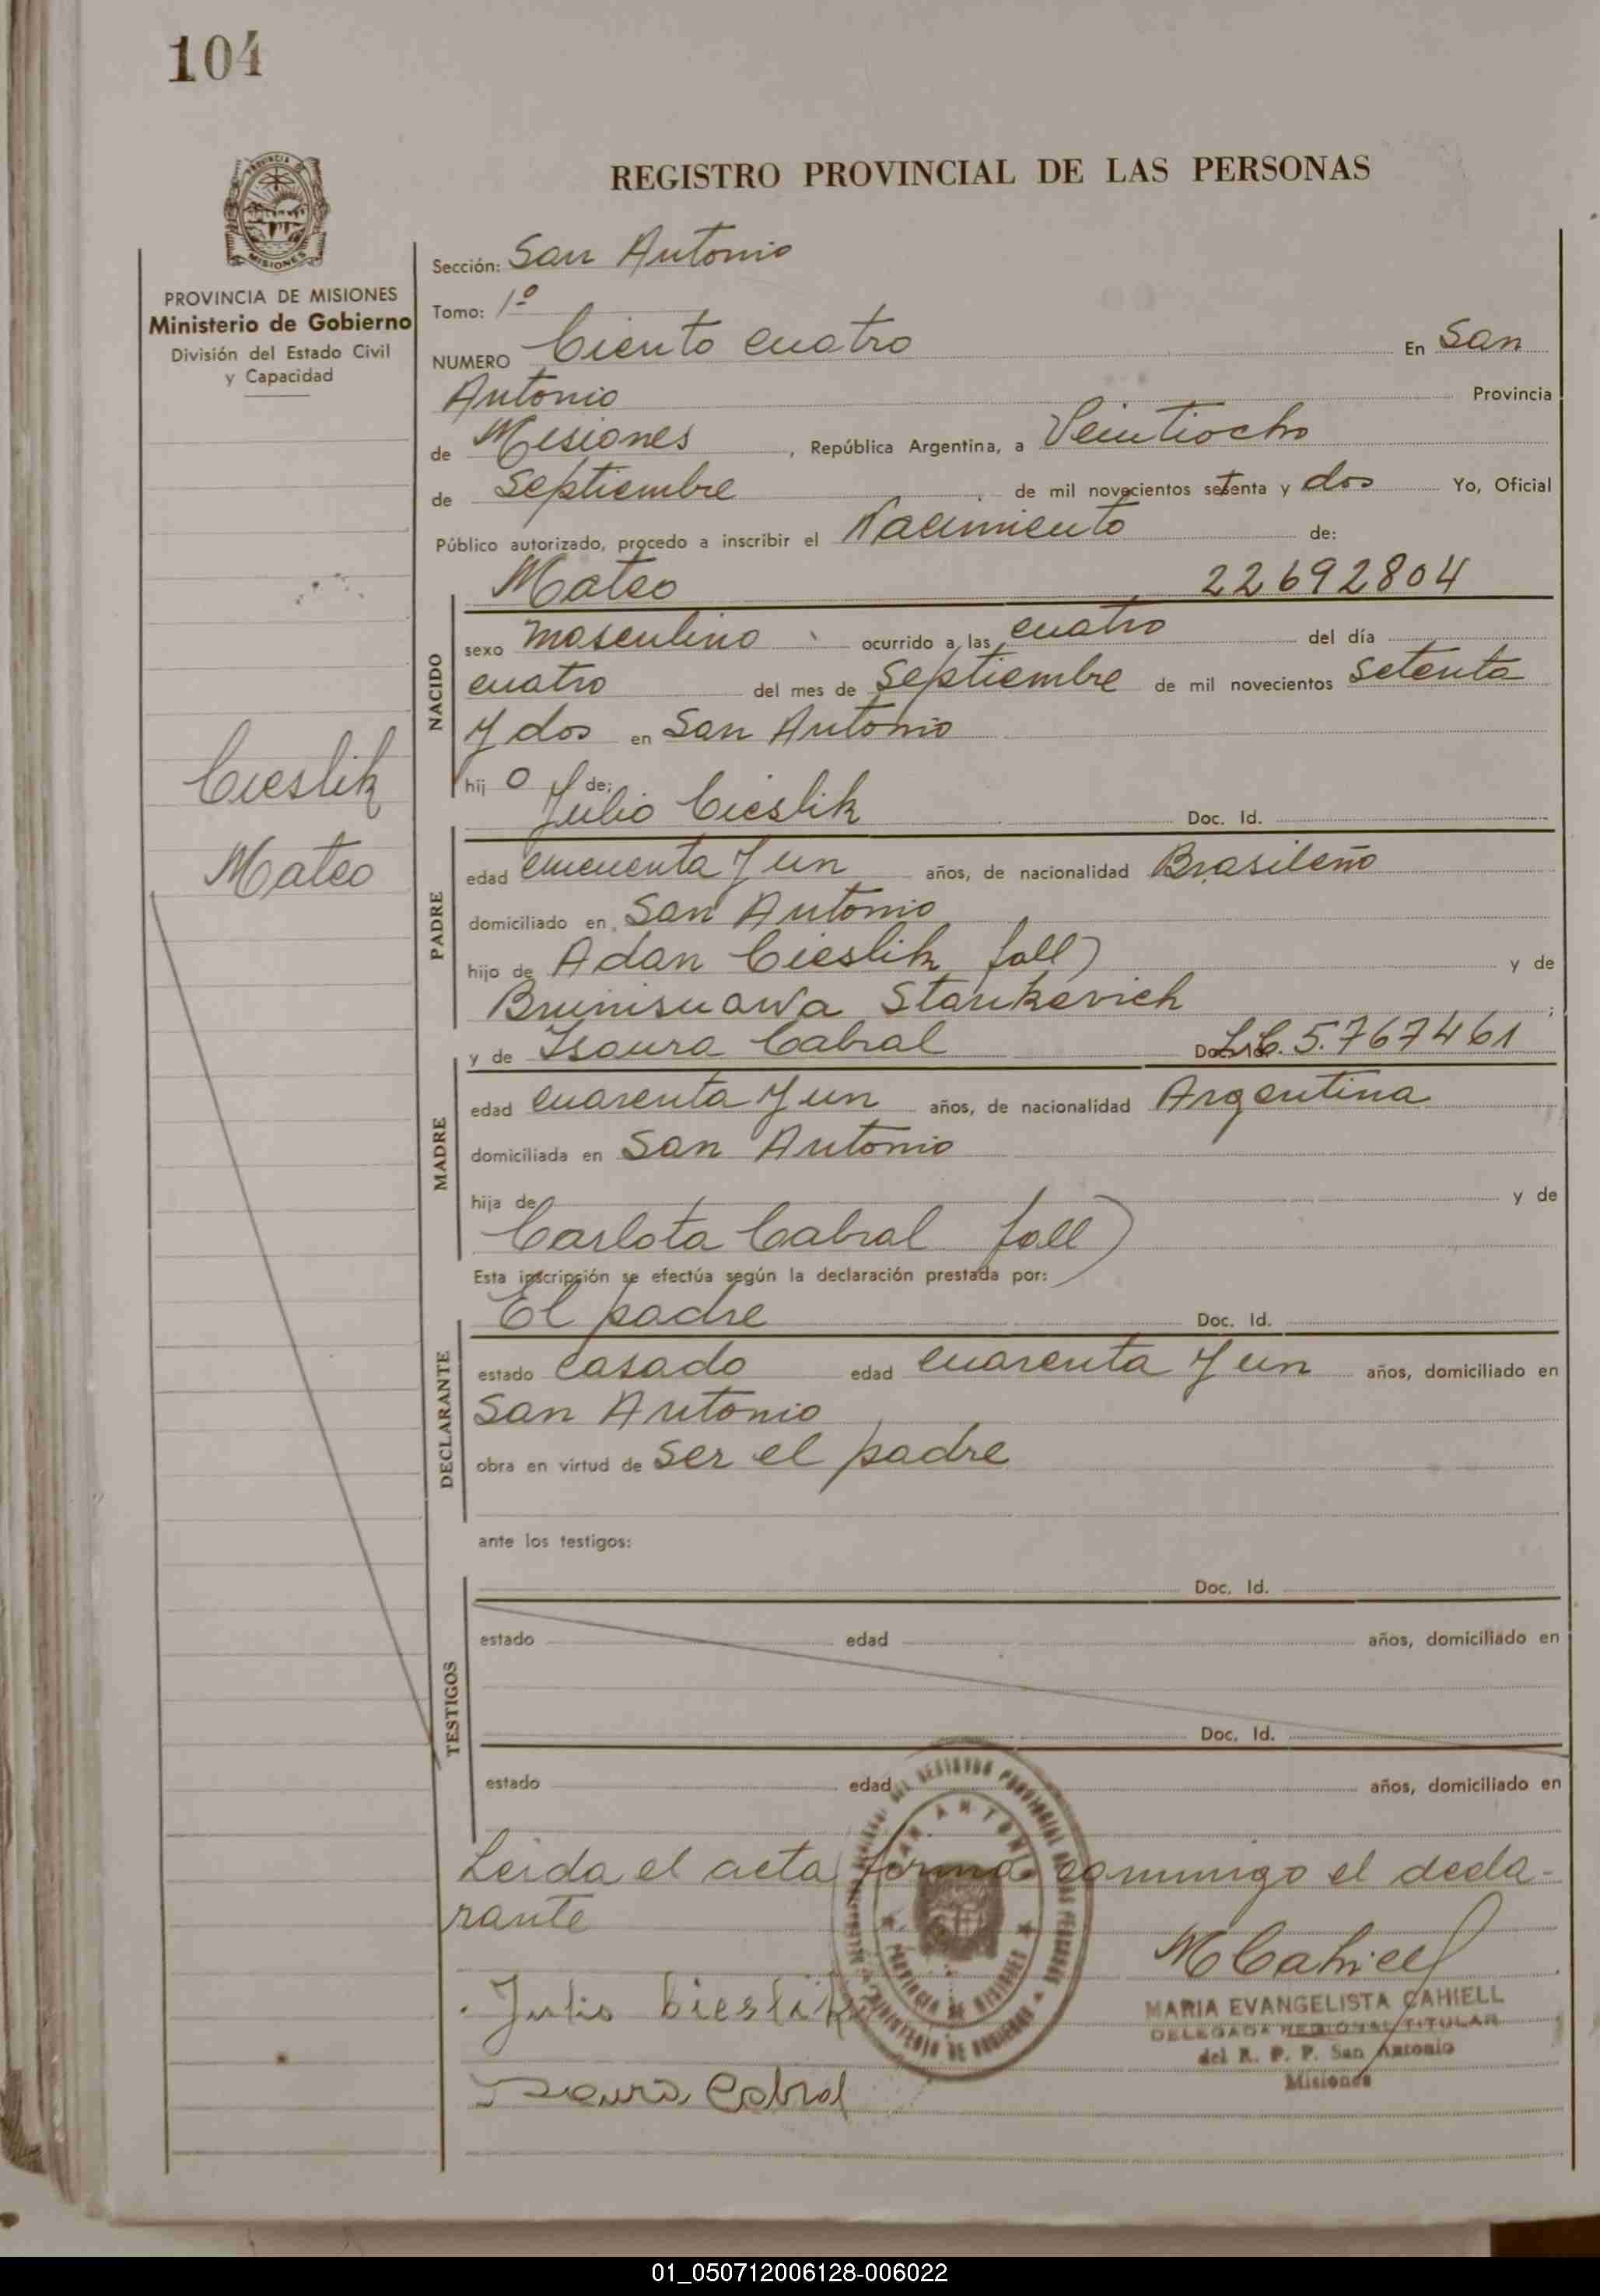 104
PROVINCIA DE MISIONES
Ministerio de Gobierno
División del Estado Civil
y Capacidad
REGISTRO PROVINCIAL DE LAS PERSONAS
Sección: San Antonio
Tomo: 1º
NUMERO Ciento cuatro En San
Antonio Provincia
de Misiones, República Argentina, a Veintiocho
de Septiembre de mil novecientos setenta y dos Yo, Oficial
Público autorizado, procedo a inscribir el Nacimiento de:
Mateo 22692804
NACIDO
sexo masculino ocurrido a las cuatro del día
cuatro del mes de Septiembre de mil novecientos setenta
y dos en San Antonio
hij o de:
Cieslik
Mateo
Julio Cieslik Doc. Id.
PADRE
edad cincuenta y un años, de nacionalidad Brasileño
domiciliado en San Antonio
hijo de Adan Cieslik fall) y de
Brunisuawa Stankevich;
y de Isaura Cabral Doc. Id. L.C. 5.767461
MADRE
edad cuarenta y un años, de nacionalidad Argentina
domiciliada en San Antonio
hija de y de
Carlota Cabral fall)
Esta inscripción se efectúa según la declaración prestada por:
El padre Doc. Id.
DECLARANTE
estado casado edad cuarenta y un años, domiciliado en
San Antonio
obra en virtud de ser el padre
ante los testigos:
Doc. Id.
TESTIGOS
estado edad años, domiciliado en
Doc. Id.
estado edad años, domiciliado en
Leida el acta firma conmigo el decla-
rante
MCahiell
Julio Cieslik
MARIA EVANGELISTA CAHIELL
DELEGADA REGIONAL TITULAR
del R. P. P. San Antonio
Misiones
Isaura Cabral
SAN ANTONIO
PROVINCIA DE MISIONES
MINISTERIO DE GOBIERNO
01_050712006128-006022